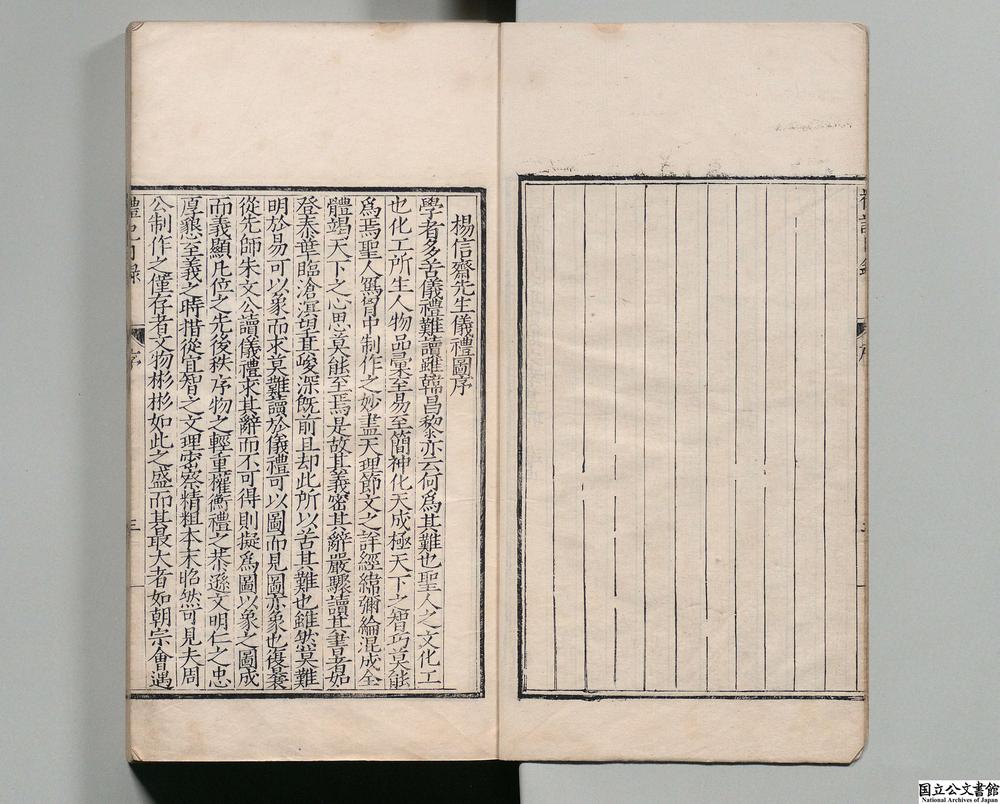 楊信齋先生儀禮圖序
學者多苦儀禮難讀雖韓昌黎亦云何爲其難也聖人之文化工
也化工所生人物品彙至易至簡神化天成極天下之智巧莫能
爲焉聖人胷中制作之妙盡天理節文之詳經緯彌綸混成全
體竭天下之心思莫能至焉是故其義密其辭嚴驟讀其書者如
登泰華臨滄溟望其峻深旣前且却此所以苦其難也雖然莫難
明於易可以象而求莫難讀於儀禮可以圖而見圖亦象也復曩
從先師朱文公讀儀禮求其辭而不可得則擬爲圖以象之圖成
而義顯凡位之先後秩序物之輕重權衡禮之恭遜文明仁之忠
厚懇至義之時措從宜智之文理密察精粗本末昭然可見夫周
公制作之僅存者文物彬彬如此之盛而其最大者如朝宗會遇
序
三
国立公文書館
National Archives of Japan